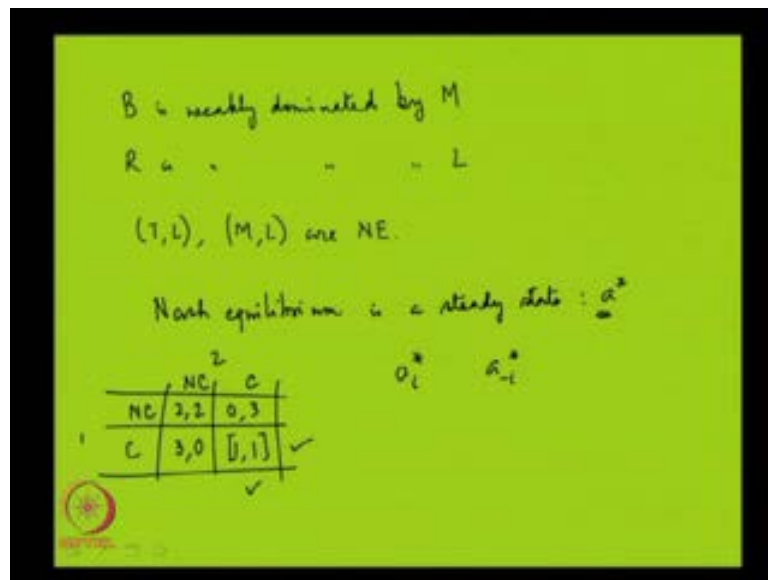 B is weakly dominated by M
R is " " " L
(T,L), (M,L) are NE.
Nash equilibrium is a steady state : a*
a_i* a_-i*
2
NC C
NC 2,2 0,3
1 C 3,0 [1,1] ✓
✓